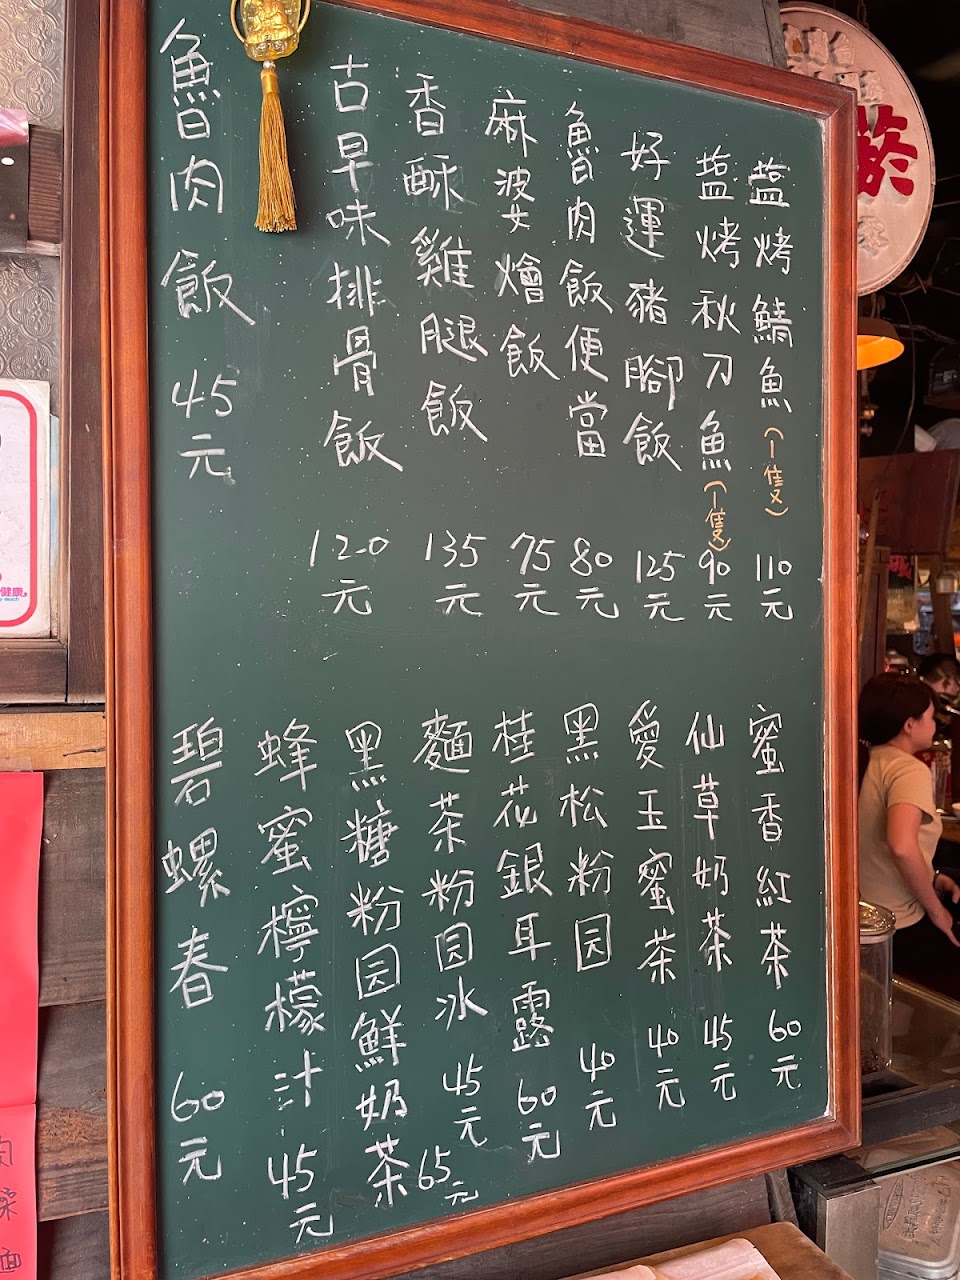 塩烤鯖魚(一隻) 110元
塩烤秋刀魚(一隻) 90元
好運豬腳飯 125元
魯肉飯便當 80元
麻婆燴飯 75元
香酥雞腿飯 135元
古早味排骨飯 120元
魯肉飯 45元
蜜香紅茶 60元
仙草奶茶 45元
愛玉蜜茶 40元
黑松粉园 40元
桂花銀耳露 60元
麵茶粉园冰 45元
黑糖粉园鮮奶茶 65元
蜂蜜檸檬汁 45元
碧螺春 60元
菸
健康